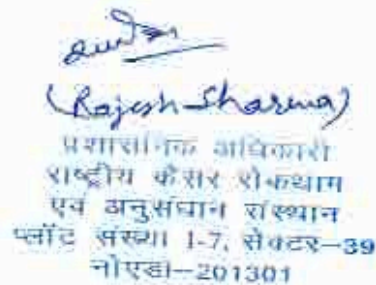 (Rajesh Sharma)
प्रशासनिक अधिकारी
राष्ट्रीय कैंसर रोकथाम
एवं अनुसंधान संस्थान
प्लॉट संख्या 1-7, सेक्टर-39
नोएडा-201301